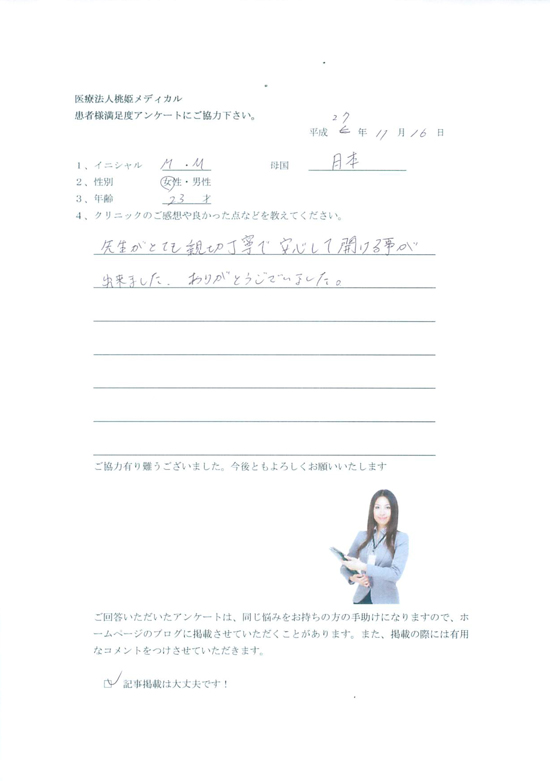 医療法人桃姫メディカル
患者様満足度アンケートにご協力下さい。
27
平成 年 11 月 16 日
1、イニシャル M・M 母国 日本
2、性別 女性・男性
3、年齢 23 才
4、クリニックのご感想や良かった点などを教えてください。
先生がとても親切丁寧で安心して開ける事が
出来ました。ありがとうございました。
ご協力有り難うございました。今後ともよろしくお願いいたします
ご回答いただいたアンケートは、同じ悩みをお持ちの方の手助けになりますので、ホ
ームページのブログに掲載させていただくことがあります。また、掲載の際には有用
なコメントをつけさせていただきます。
記事掲載は大丈夫です！